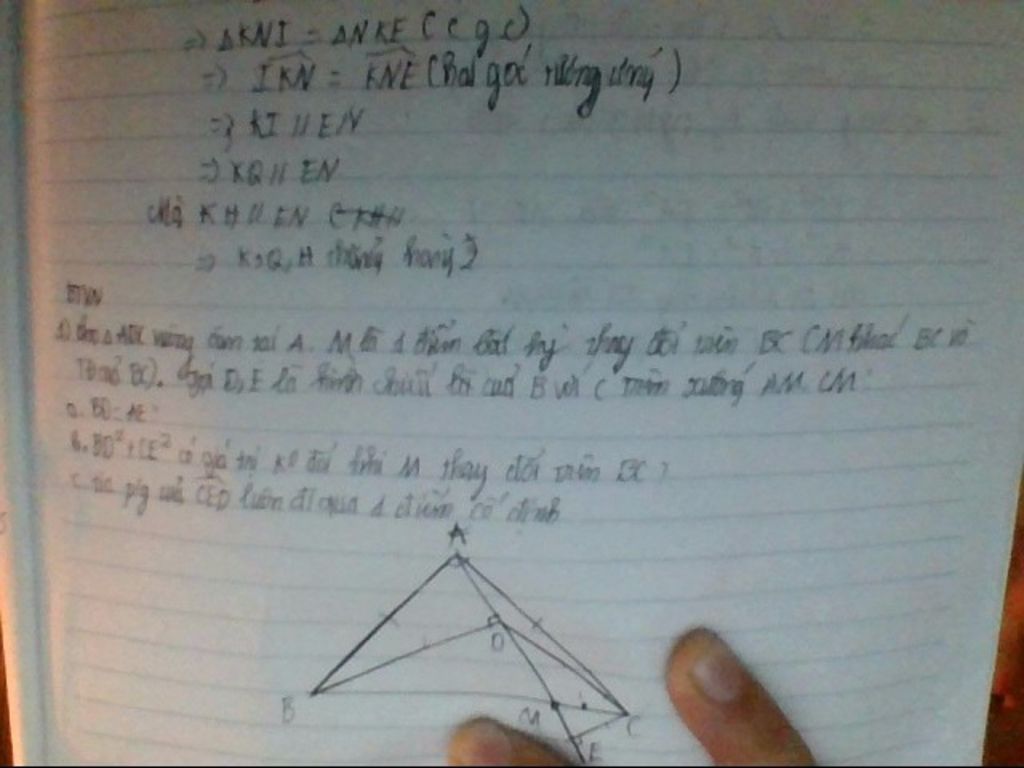 => ΔKNI = ΔNKE (c g c)
=> IKN = KNE (hai góc tương ứng)
=> KI // EN
=> KQ // EN
Mà KH // EN
=> K, Q, H thẳng hàng
BTVN
1) Cho ΔABC vuông cân tại A. M là 1 điểm bất kỳ thay đổi trên BC (M khác BC và
BC). Gọi D, E là hình chiếu của B và C trên xuống AM. CM:
a. BD = AE
b. BD² + CE² có giá trị k° đổi khi M thay đổi trên BC
c. tia p/g của CED luôn đi qua 1 điểm cố định
A
D
B
M
C
E